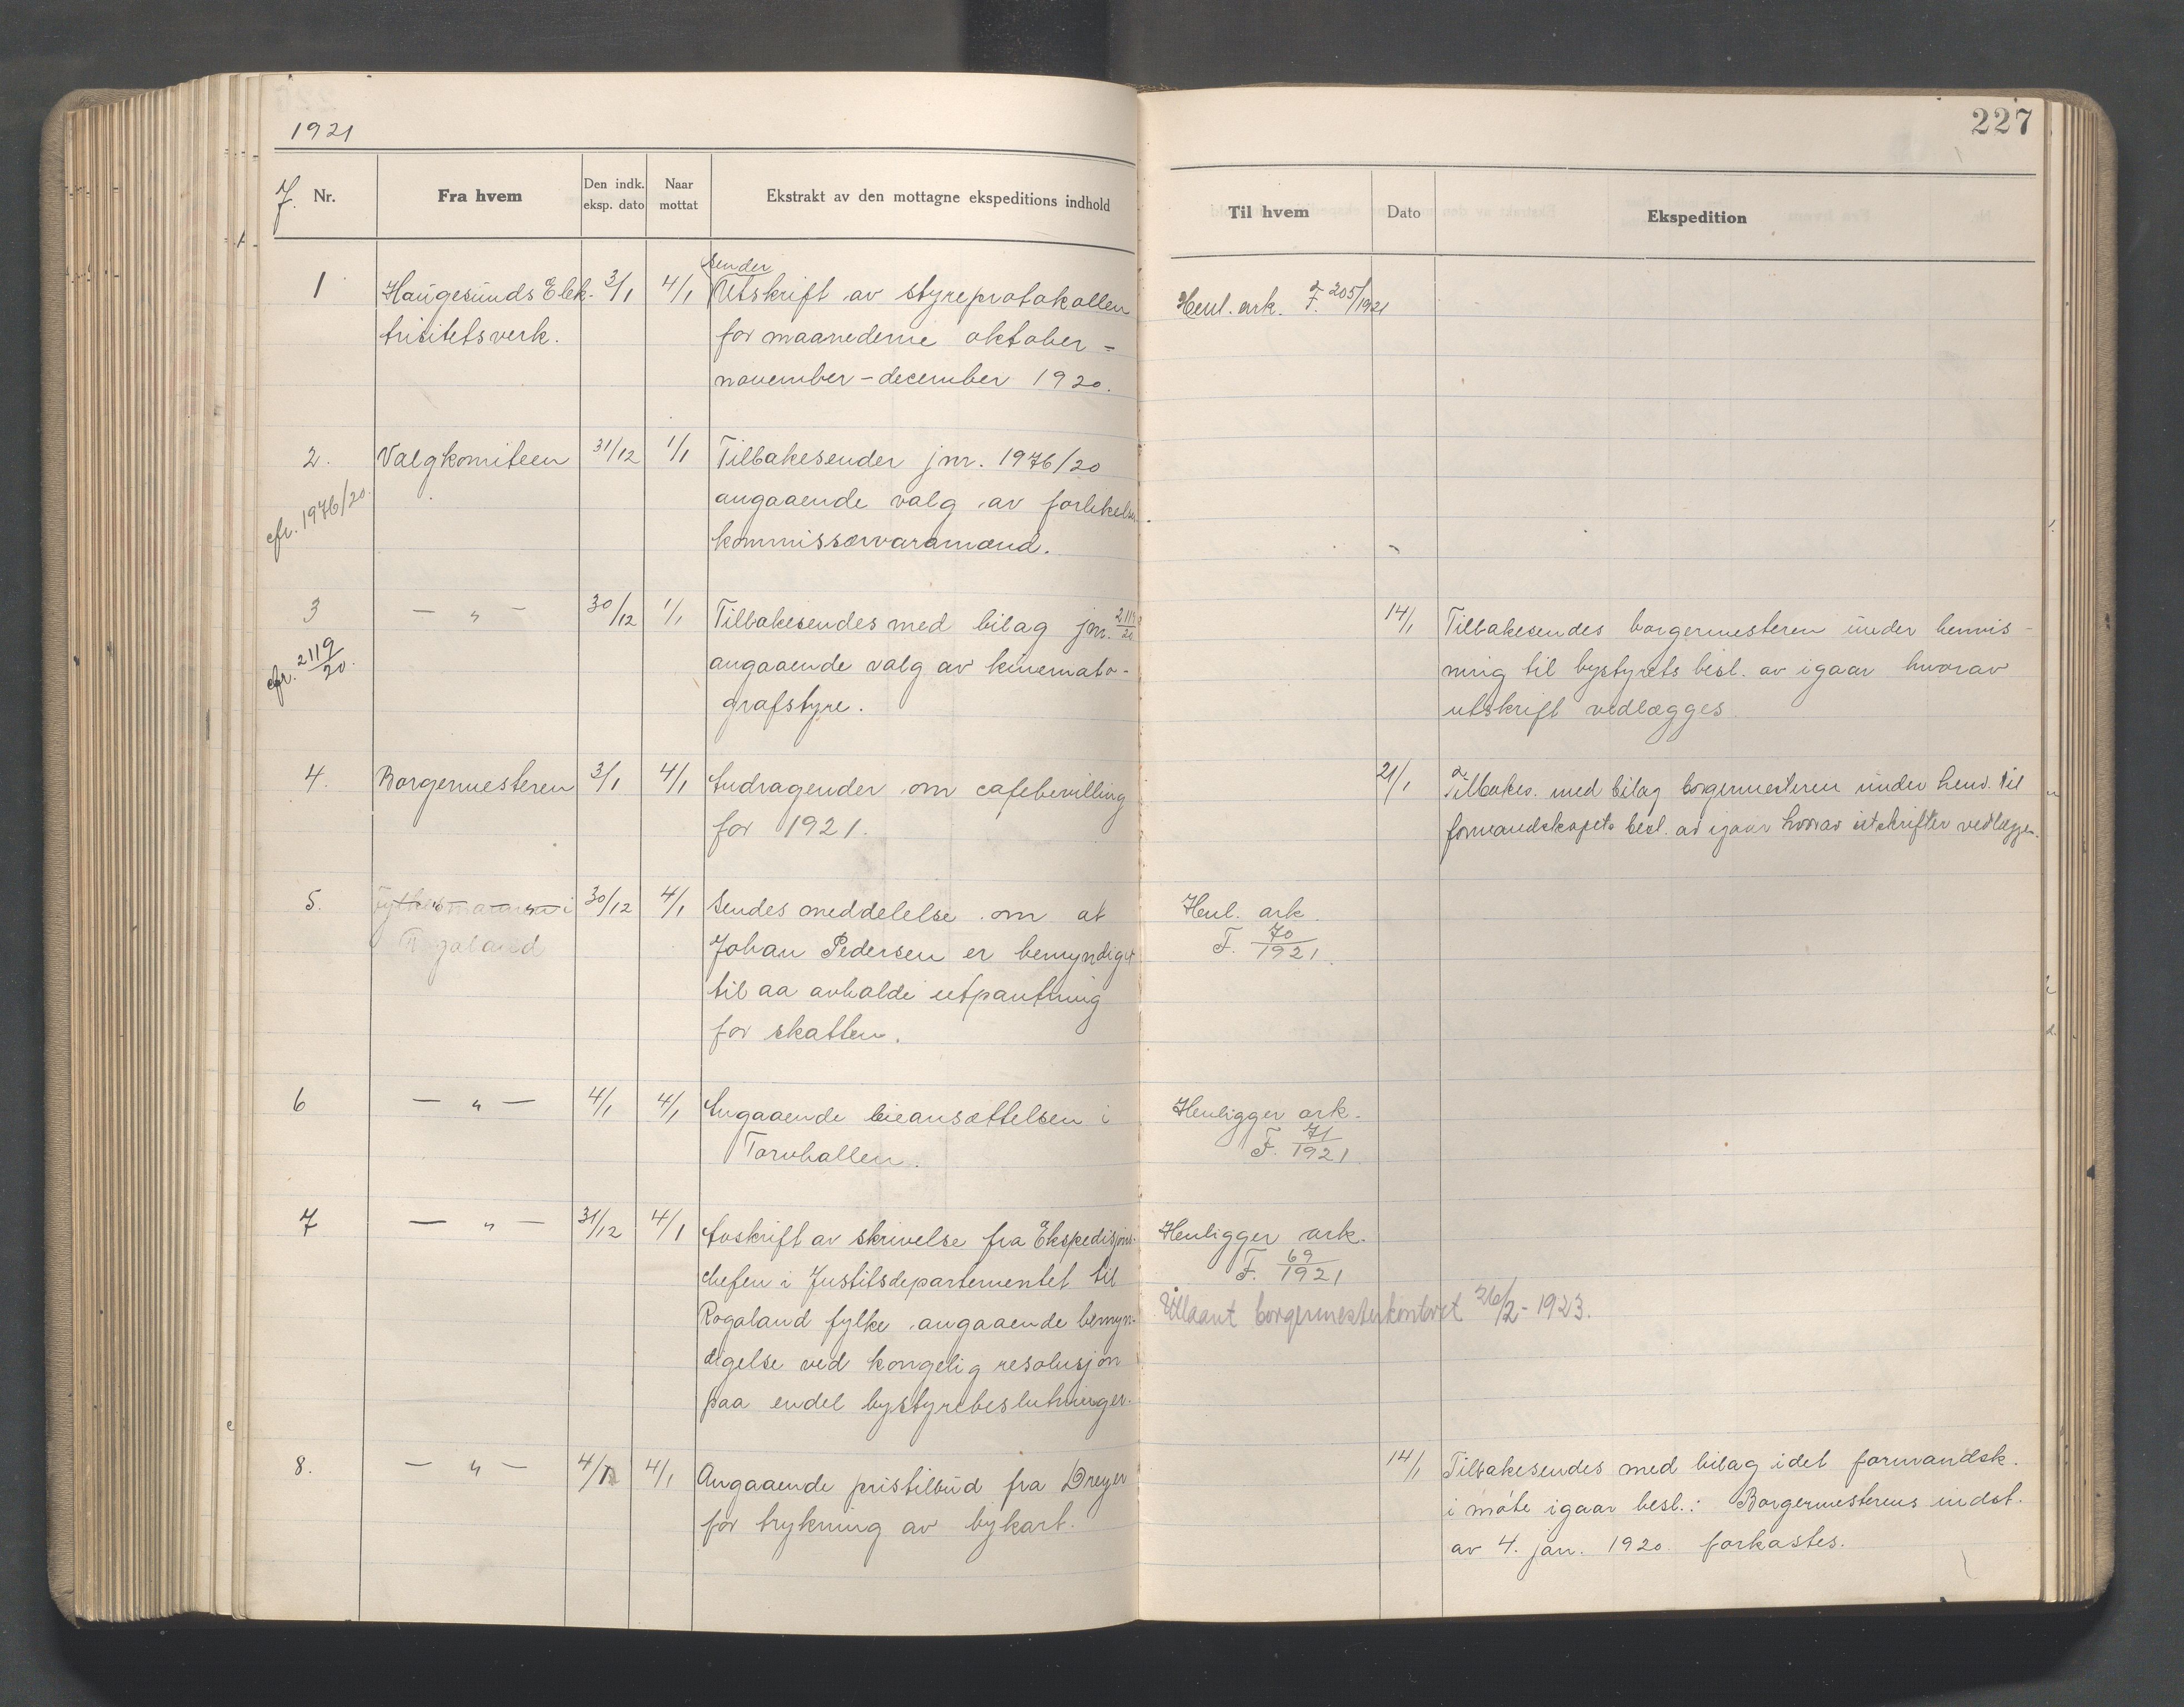 1921
227
J. Nr.
Fra hvem
Den indk. eksp. dato
Naar mottat
Ekstrakt av den mottagne ekspeditions indhold
Til hvem
Dato
Ekspedition
1
Haugesunds Elek-
trisitetsverk.
3/1
4/1
Sender
Utskrift av styreprotokollen
for maanederne oktober -
november - december 1920.
Henl. ark. F. 205/1921
2.
cfr. 1976/20.
Valgkomiteen
31/12
1/1
Tilbakesender jnr. 1976/20
angaaende valg av forlikelses-
kommissærvaramænd.
3
cfr. 2119/20.
— " —
30/12
1/1
Tilbakesendes med bilag jnr. 2119/20
angaaende valg av kinemato-
grafstyre.
14/1
Tilbakesendes borgermesteren under henvis-
ning til bystyrets besl. av igaar hvorav
utskrift vedlægges
4.
Borgermesteren
3/1
4/1
Andragender om cafebevilling
for 1921.
21/1
Tilbakes. med bilag borgermesteren under henv. til
formandskapets besl. av igaar hvorav utskrifter vedlægges.
5.
Fylkesmannen i
Rogaland
30/12
4/1
Sendes meddelelse om at
Johan Pedersen er bemyndiget
til aa avholde utpantning
for skatten.
Henl. ark.
F. 70/1921.
6
— " —
4/1
4/1
Angaaende leieansættelsen i
Torvhallen.
Henligger ark.
F. 71/1921.
7
— " —
31/12
4/1
Avskrift av skrivelse fra Ekspedisjons-
chefen i Justitsdepartementet til
Rogaland fylke angaaende bemyn-
digelse ved kongelig resolusjon
paa endel bystyrebeslutninger.
Henligger ark.
F. 69/1921
Utlaant borgermesterkontoret 26/2 - 1923.
8.
— " —
4/1
4/1
Angaaende pristilbud fra Dreyer
for trykning av bykart.
14/1
Tilbakesendes med bilag idet formandsk.
i møte igaar besl.: Borgermesterens indst.
av 4. jan. 1920 forkastes.